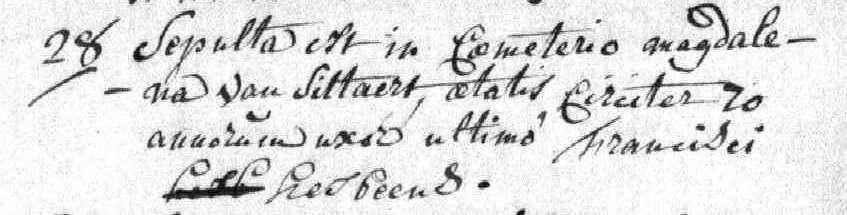 28 Sepulta est in Cœmeterio magdale-
-na van Sittaert, ætatis Circiter 70
annorum uxor ultimò Francisci